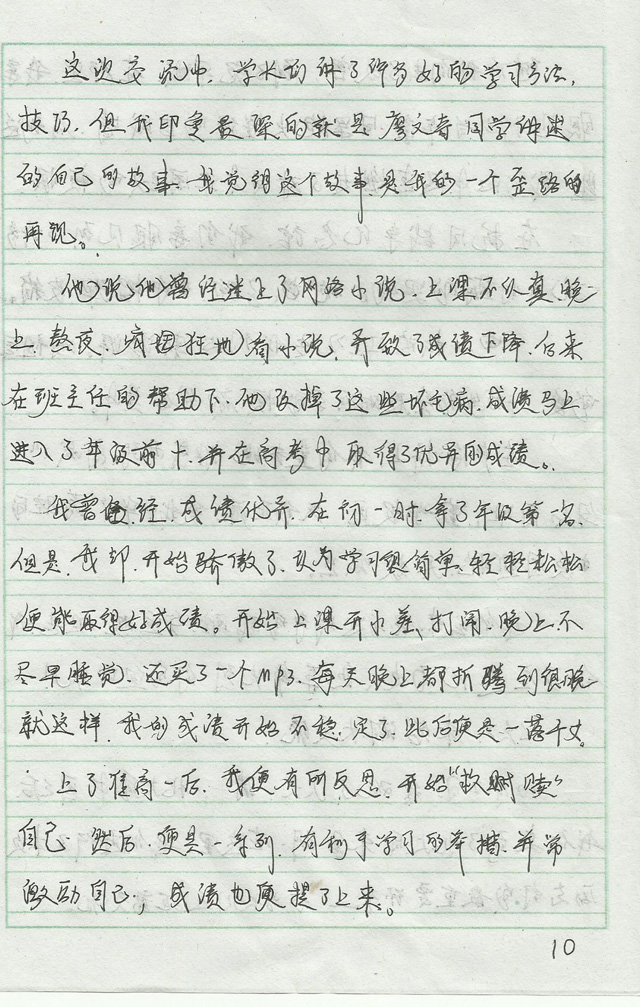 这次交流中，学长们讲了许多好的学习方法，
技巧，但我印象最深的就是廖文奇同学讲述
的自己的故事，我觉得这个故事，是我的一个歪路的
再现。
他说他曾经迷上了网络小说，上课不认真，晚
上，熬夜，疯狂地看小说，导致了成绩下降，后来
在班主任的帮助下，他改掉了这些坏毛病，成绩马上
进入了年级前十，并在高考中取得了优异的成绩。
我曾经，成绩优异，在初一时，拿了年级第一名，
但是，我却，开始骄傲了，认为学习很简单，轻轻松松
便能取得好成绩。开始上课开小差，打闹，晚上不
尽早睡觉，还买了一个mp3，每天晚上都折腾到很晚
就这样，我的成绩开始不稳，定了，此后便是一落千丈。
上了准高一后，我便有所反思，开始“救赎”
自己，然后，便是一系列，有利于学习的举措，并常
激励自己，成绩也便提了上来。
10